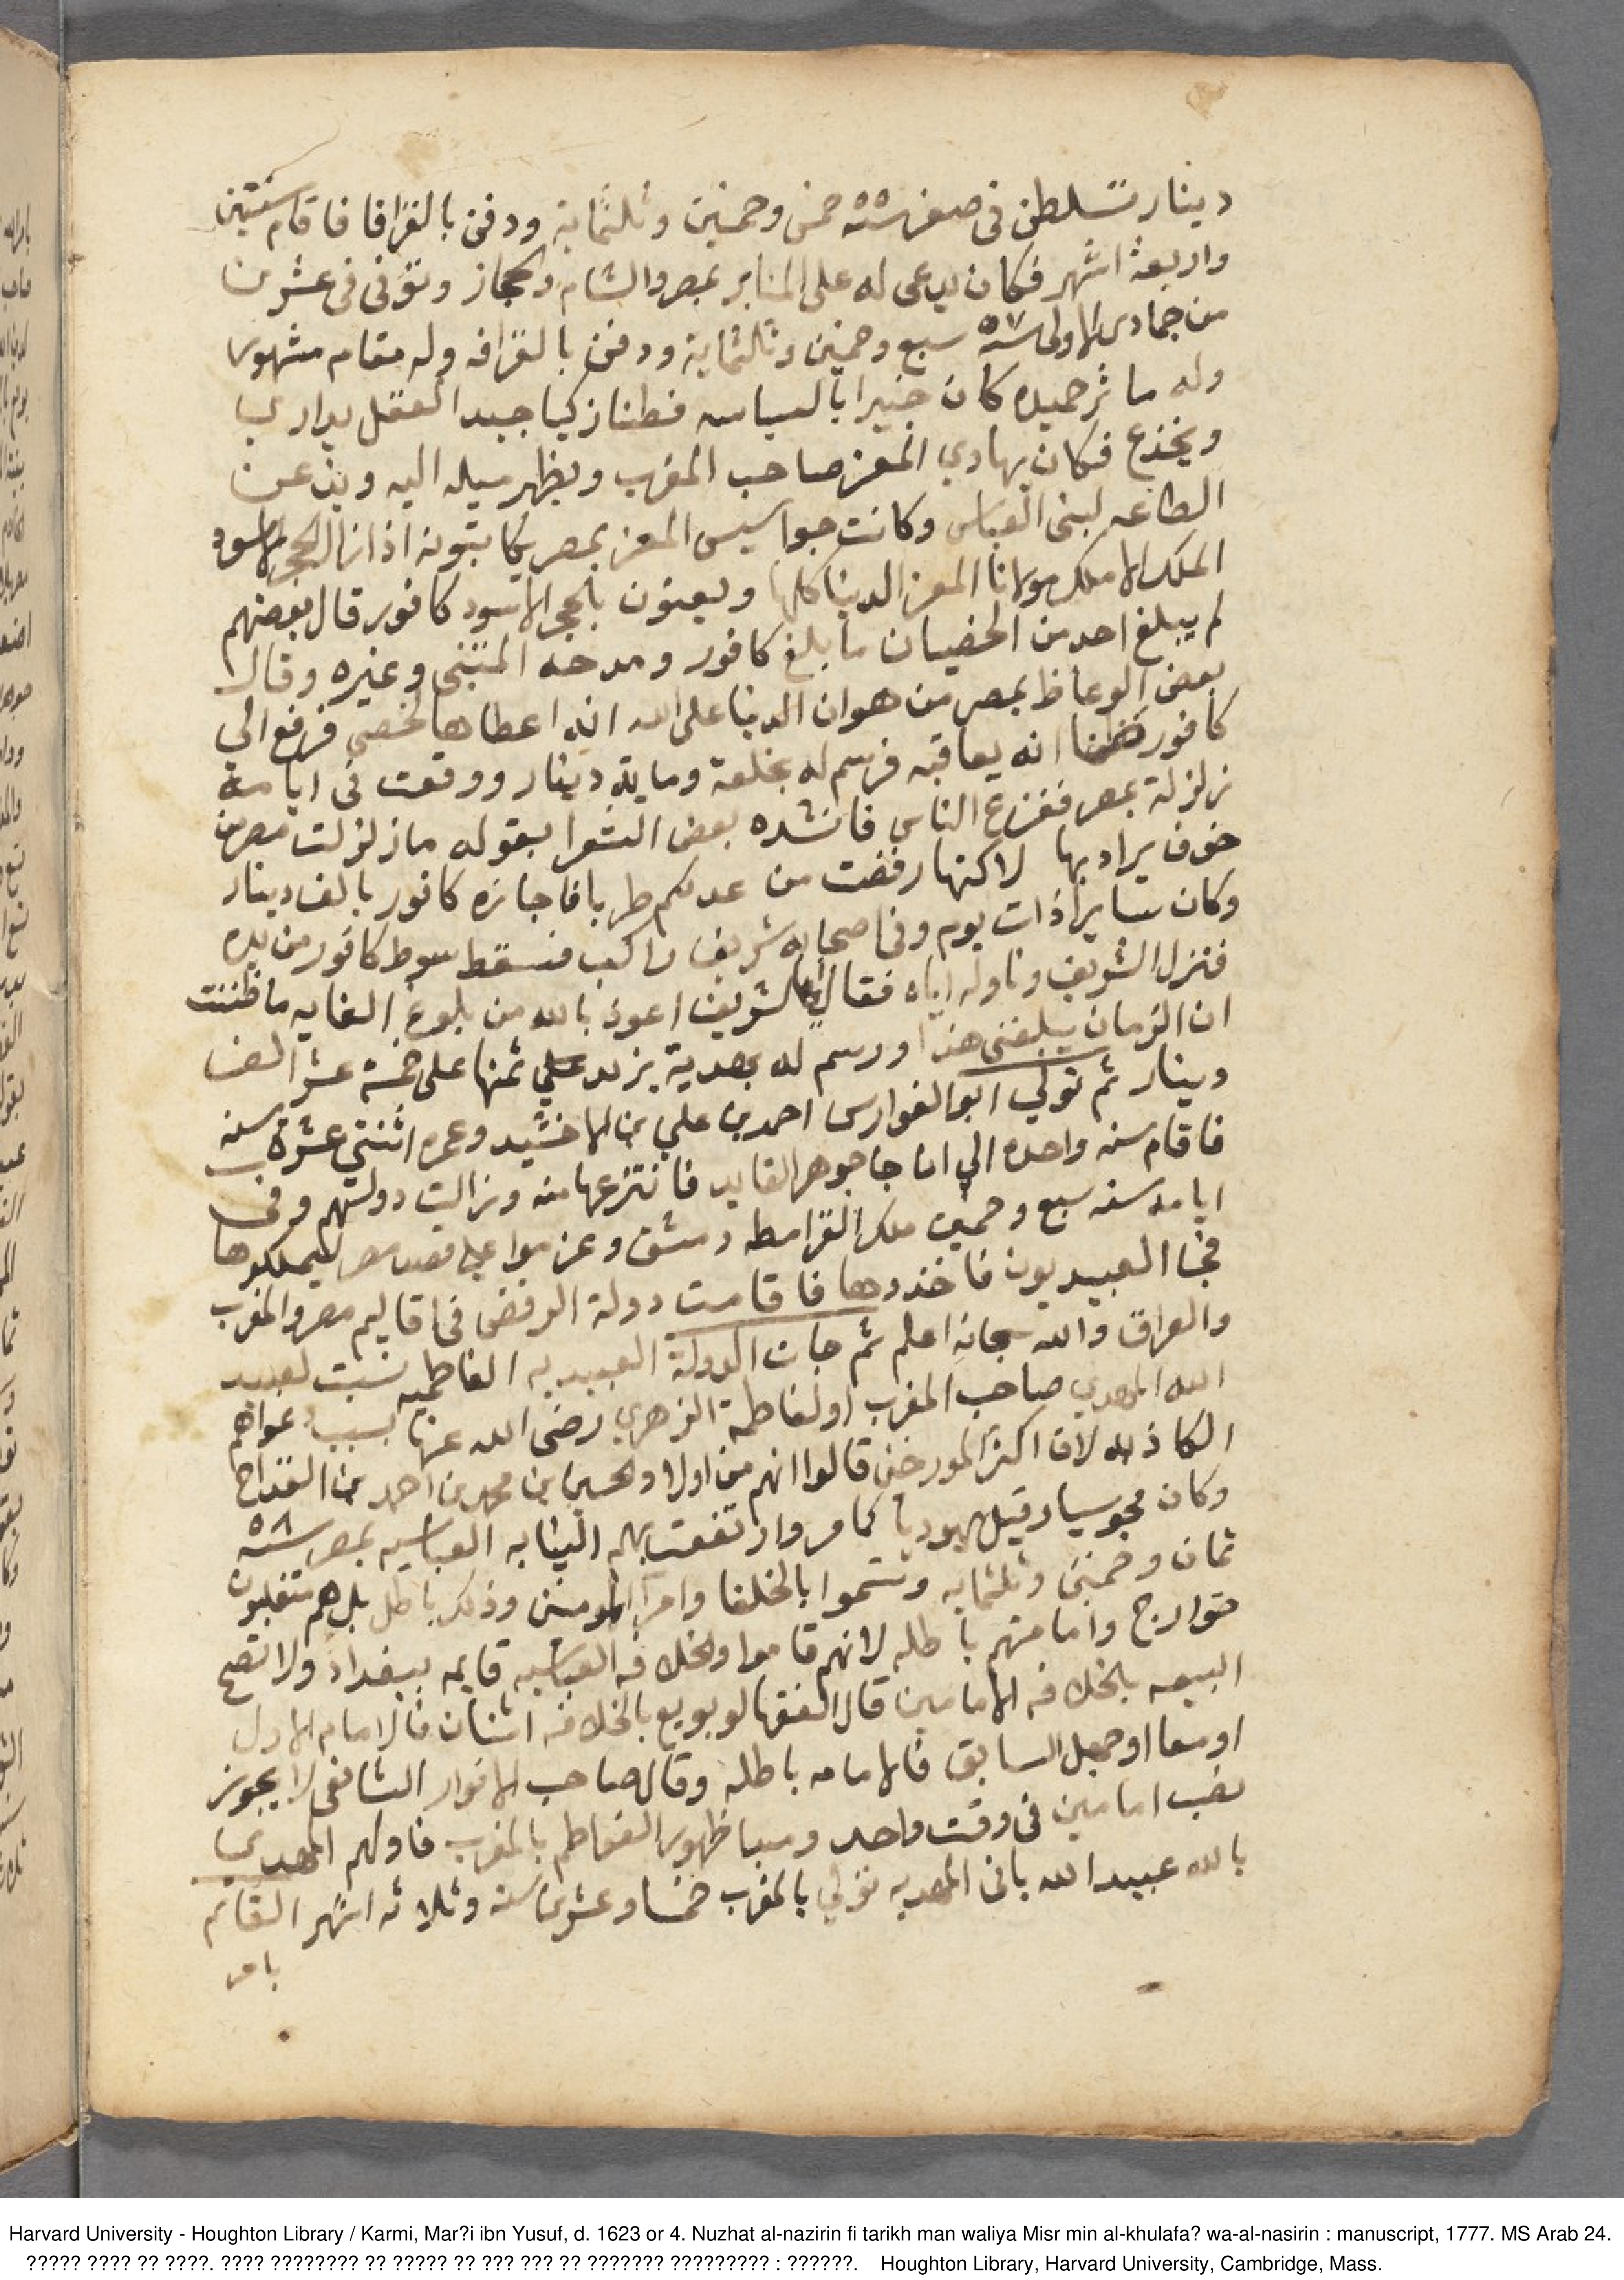 دينار تسلطن في صفر سنه ٥٥ خمس وخمسين وثلثماية ودفن بالقرافا فاقام سنتين
واربعة اشهر فكان يدعى له على المنابر بمصر والشام والحجاز وتوفى فى عشرين
من جمادى الاولى سنه ٥٧ سبع وخمسين وثلثماية ودفن بالقرافه وله مقام مشهور
وله ماثر حميده كان خبيرا بالسياسه فطنا زكيا جيد العقل يداري
ويخدع فكان يهادي المعز صاحب المغرب ويظهر ميله اليه ويذعن
الطاعه لبني العباس وكانت جواسيس المعز بمصر يكاتبونه اذا زال الحجر الاسود
الملك لا ملك مولانا المعز الدنيا كلها ويعنون بالحجر الاسود كافور قال بعضهم
لم يبلغ احد من الخصيان ما بلغ كافور ومدحه المتنبي وغيره وقال
بعض الوعاظ بمصر من هوان الدنيا على الله انه اعطاها لخصي فرفع الي
كافور ظنا انه يعاقبه فرسم له بخلعة وماية دينار ووقعت في ايامه
زلزلة بمصر ففزع الناس فانشده بعض الشعرا بقوله ما زلزلت مصر من
خوف يراد بها لاكنها رقصت من عدلكم طربا فاجازه كافور بالف دينار
وكان سايرا ذات يوم وفى اصحابه شريف راكب فسقط سوط كافور من يده
فنزل الشريف وناوله اياه فقال ايها الشريف اعوذ بالله من بلوغ الغايه ما ظننت
ان الزمان يبلغني هذا ورسم له بهدية يزيد علي ثمنها على خمسة عشر الف
دينار ثم تولي ابو الفوارس احمد بن علي بن الاخشيد وعمره اثنتي عشرة سنه
فاقام سنه واحده الي ان جا جوهر القايد فانتزعها منه وزالت دولتهم وفى
ايامه سنه سبع وخمسين ملك القرامطه دمشق وعزموا على قصد مصر ليملكوها
فجا العبيديون فاخذوها فاقامت دولة الرفض فى اقاليم مصر والمغرب
والعراق والله سبحانه اعلم ثم جات الدولة العبيديه الفاطميه نسبت لعبيد
الله المهدي صاحب المغرب او لفاطمة الزهري رضى الله عنها بسبب دعواهم
الكاذبه لان اكثر المورخين قالوا انهم من اولاد الحسين بن محمد بن احمد بن القداح
وكان مجوسيا وقيل يهوديا كما مر وارتفعت بهم النيابه العباسيه بمصر سنه ٥٨
ثمان وخمسين وثلثمايه وتسموا بالخلفا وامرآ المومنين وذلك باطل بل هم متغلبون
خوارج وامامتهم باطله لانهم قاموا والخلافه العباسيه قايمه ببغداد ولا تصح
البيعه بالخلافه لامامين قال الفقها لو بويع بالخلافه اثنان فالامام الاول
او معا او جهل السابق فالامامه باطله وقال صاحب الانوار الشافعي لا يجوز
نصب امامين فى وقت واحد ومبدا ظهور الفواطم بالمغرب فاولهم المهدي
بالله عبيد الله بانى المهديه تولي بالمغرب خمسا وعشرين سنه وثلاثه اشهر القائم
بامر
Harvard University - Houghton Library / Karmi, Mar?i ibn Yusuf, d. 1623 or 4. Nuzhat al-nazirin fi tarikh man waliya Misr min al-khulafa? wa-al-nasirin : manuscript, 1777. MS Arab 24.
????? ???? ?? ????. ???? ???????? ?? ????? ?? ??? ??? ?? ??????? ????????? : ??????. Houghton Library, Harvard University, Cambridge, Mass.